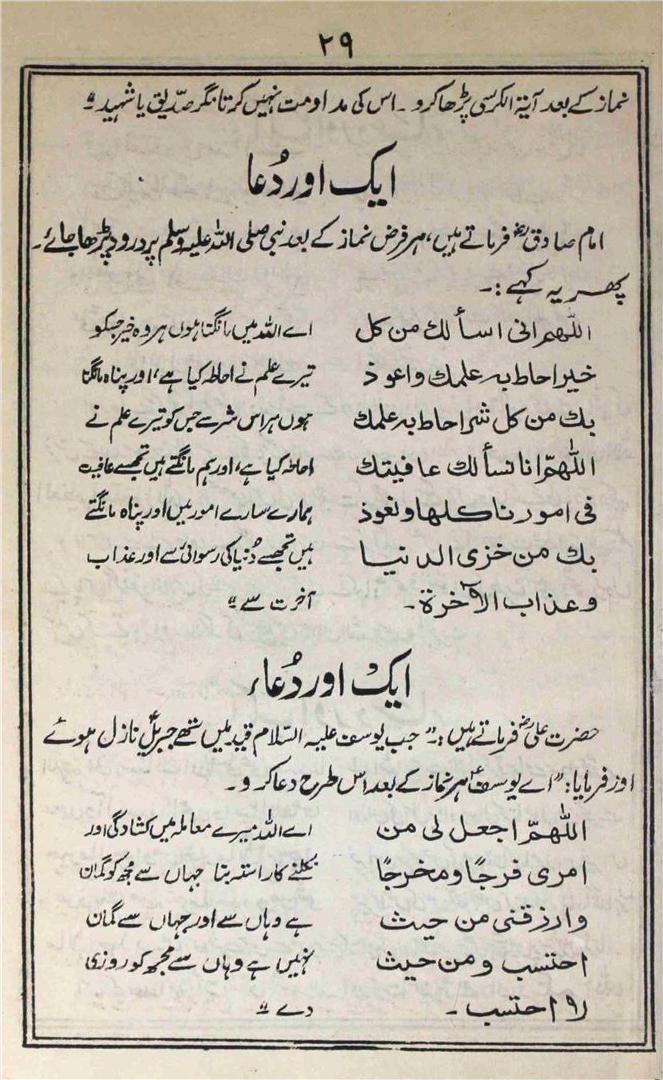 ۲۹
نماز کے بعد آیۃ الکرسی پڑھا کرو۔ اس کی مداومت نہیں کرتا مگر صدیق یا شہید"
ایک اور دُعا
امام صادقؓ فرماتے ہیں، ہر فرض نماز کے بعد نبی صلی اللہ علیہ وسلم پر درود پڑھا جائے۔
پھر یہ کہے:۔
اللھم انی اسألك من كل
خير احاط به علمك واعوذ
بك من كل شر احاط به علمك
اللّٰھمّ انا نسألك عافيتك
فی امورنا كلها ونعوذ
بك من خزی الدنیا
وعذاب الآخرة۔
اے اللہ میں مانگتا ہوں ہر وہ خیر جسکو
تیرے علم نے احاطہ کیا ہے، اور پناہ مانگتا
ہوں ہر اس شر سے جس کو تیرے علم نے
احاطہ کیا ہے، اور ہم مانگتے ہیں تجھسے عافیت
ہمارے سارے امور میں اور پناہ مانگتے
ہیں تجھسے دُنیا کی رسوائی سے اور عذاب
آخرت سے"
ایک اور دُعاء
حضرت علیؓ فرماتے ہیں:۔" جب یوسف علیہ السلام قید میں تھے جبریلؑ نازل ہوئے
اور فرمایا:" اے یوسفؑ ہر نماز کے بعد اس طرح دعا کرو۔
اللّٰھمّ اجعل لی من
امری فرجًا ومخرجًا
وارزقنی من حیث
احتسب ومن حیث
لا احتسب۔
اے اللہ میرے معاملہ میں کشادگی اور
نکلنے کا راستہ بنا جہاں سے مجھ کو گمان
ہے وہاں سے اور جہاں سے گمان
نہیں ہے وہاں سے مجھ کو روزی
دے"